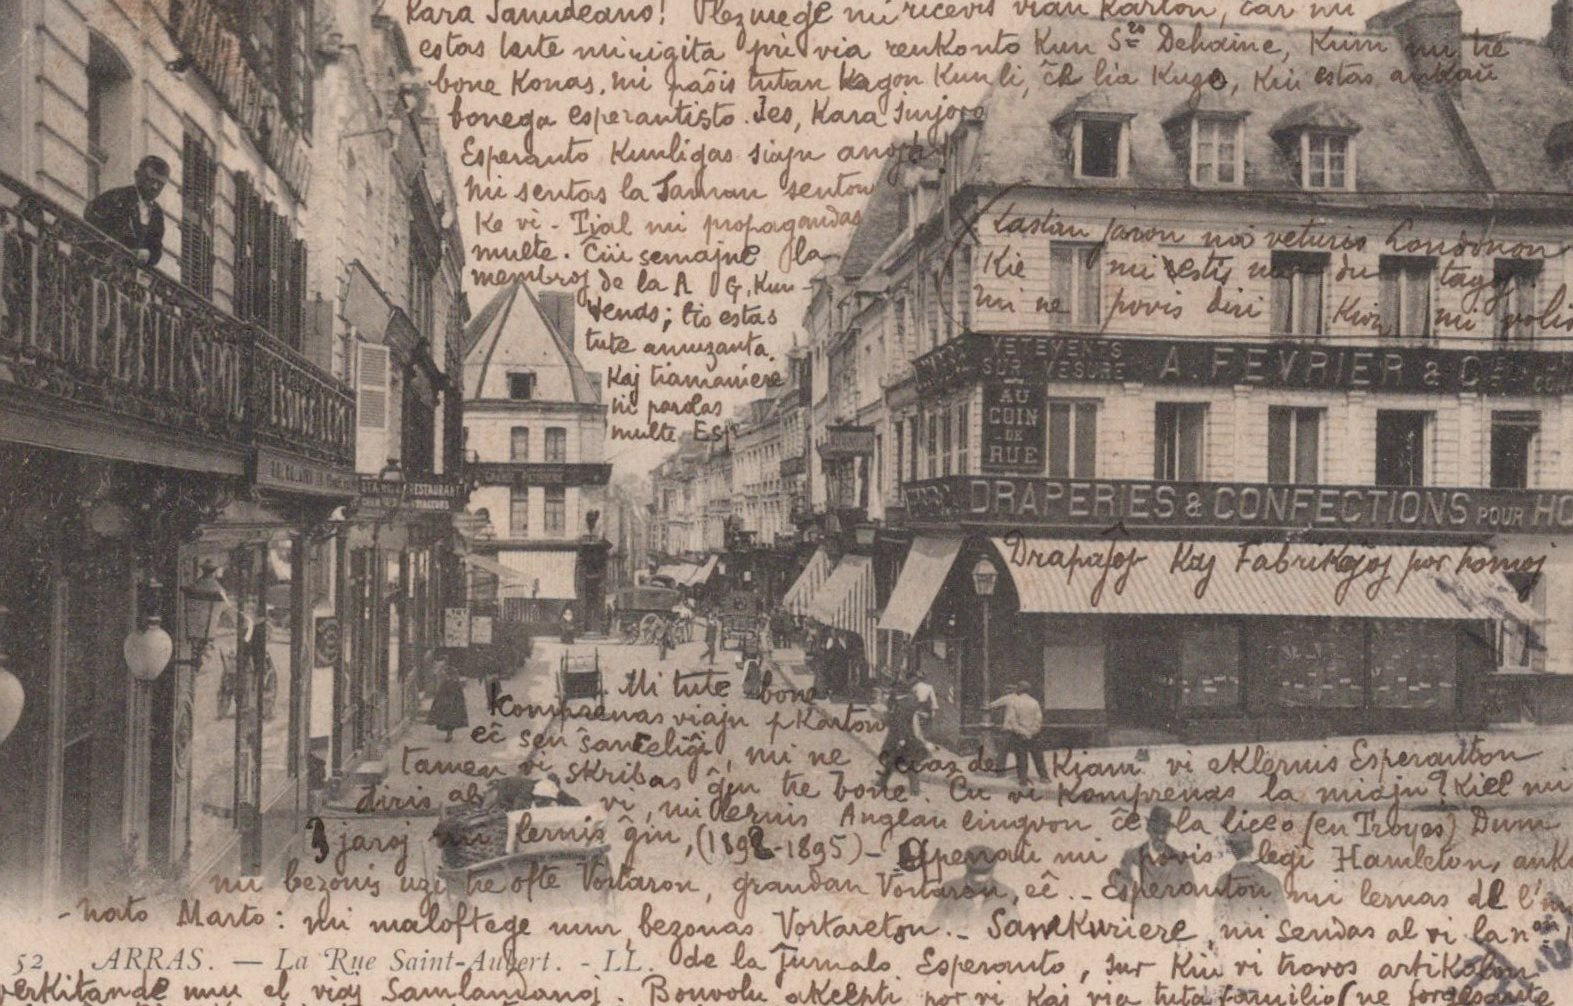 Kara Samideano! Plezurege mi ricevis vian Karton, ĉar mi
estas tute mirigita pri via renkonto Kun Sro Dehaine, Kiun mi tre
bone Konas. Mi paŝis tutan tagon Kun li, ĉe lia Kuzo, Kiu estas ankaŭ
bonega esperantisto. Jes, Kara Sinjoro
Esperanto Kunligas siajn anojn
mi sentas la saman senton
Ke vi - Tial mi propagandas
multe. Ĉiusemajne la
membroj de la A G. Kun-
venas; tio estas
tute amuzanta.
Kaj tiamaniere
ni parolas
multe Esp
Lastan jaron ni veturis Londonon
Kie mi restis du tagoj.
mi ne povis diri Kion mi volis
VETEMENTS
SUR MESURE
A. FEVRIER & Cie
AU
COIN
DE
RUE
DRAPERIES & CONFECTIONS POUR HO
Drapaĵoj Kaj Fabrikaĵoj por homoj
RESTAURANT
Mi tute bone
Komprenas viajn pKartojn
eĉ sen ŝanceliĝi, mi ne scias de Kiam vi eklernis Esperanton
tamen vi skribas ĝin tre bone. Ĉu vi Komprenas la miajn? Kiel mi
diris al vi, mi lernis Anglan lingvon ĉe la liceo (en Troyes) Dum
3 jaroj mi lernis ĝin, (1892-1895) - Apenaŭ mi povis legi Hamleton, ankaŭ
mi bezonis uzi tre ofte Vortaron, grandan Vortaron, eĉ .- Esperanton mi lernas de l'
-nato Marto: mi maloftege nun bezonas Vortareton .- Samkuriere, mi sendas al vi la no
52 ARRAS. — La Rue Saint-Aubert. - LL.
de la Ĵurnalo Esperanto, sur Kiu vi trovos artikolon
verkitan de unu el viaj Samlandanoj. Bonvolu akcepti por vi Kaj via tuta familio (ne forgesante